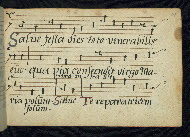 Salve festa dies toto venerabilis
qua pia conscendit virgo Ma-
ria polum. Salve Te reparatricem
solum.